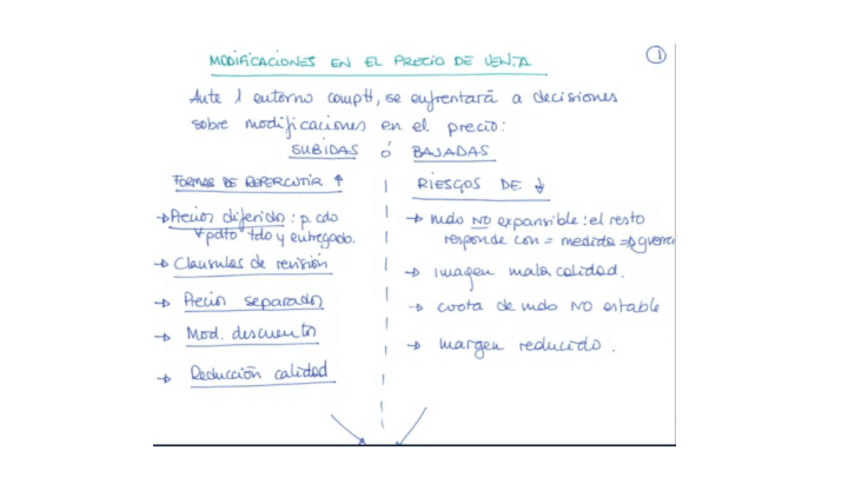 MODIFICACIONES EN EL PRECIO DE VENTA
1
Ante l entorno comptt, se enfrentará a decisiones
sobre modificaciones en el precio:
SUBIDAS ó BAJADAS
FORMAS DE REPERCUTIR ↑
→ Precios diferido: p. cdo
pdto tdo y entregado.
→ Clausulas de revisión
→ Precios separados
→ Mod. descuento
→ Reducción calidad
RIESGOS DE ↓
→ mdo NO expansible: el resto
responde con = medida => guerra
→ imagen mala calidad.
→ cuota de mdo NO estable
→ margen reducido.